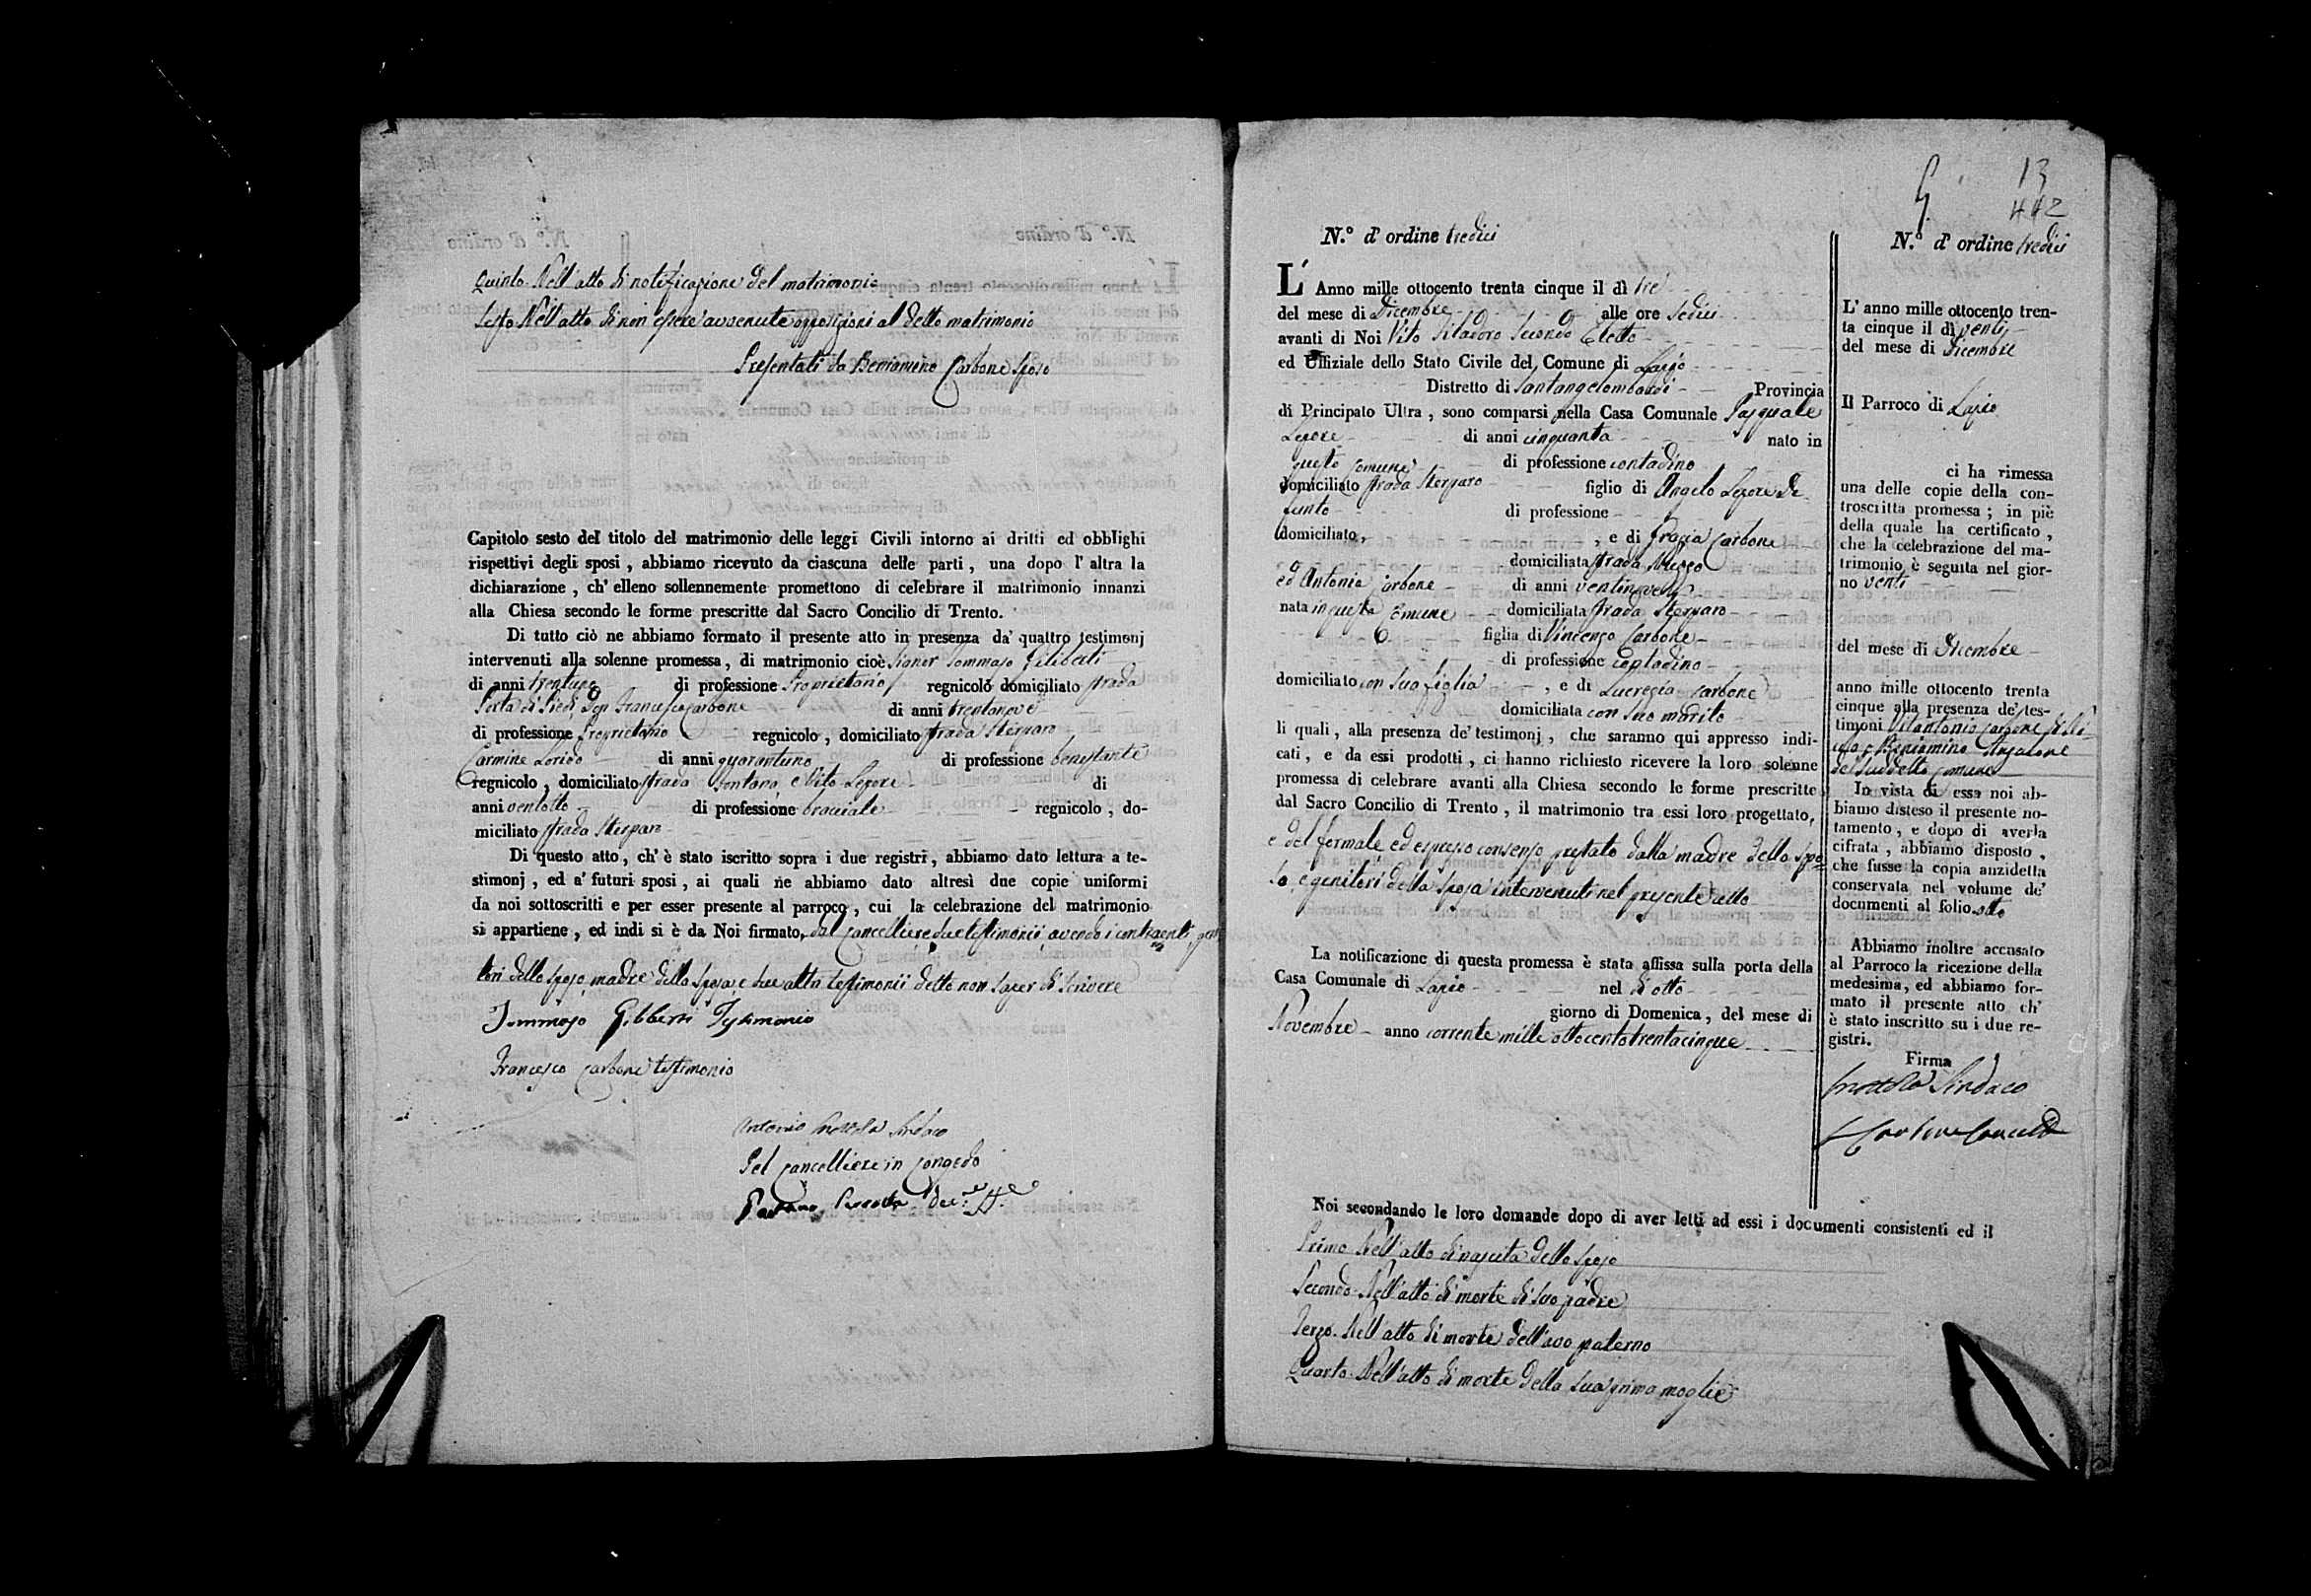 Quinto. Nell'atto di notificazione del matrimonio
Sesto Nell'atto di non essere avvenute opposizioni al detto matrimonio
Presentati da Beniamino Carbone sposo
Capitolo sesto del titolo del matrimonio delle leggi Civili intorno ai dritti ed obblighi
rispettivi degli sposi , abbiamo ricevuto da ciascuna delle parti , una dopo l'altra la
dichiarazione , ch'elleno sollennemente promettono di celebrare il matrimonio innanzi
alla Chiesa secondo le forme prescritte dal Sacro Concilio di Trento.
Di tutto ciò ne abbiamo formato il presente atto in presenza da' quattro testimonj
intervenuti alla solenne promessa, di matrimonio cioè Signor Tommaso Filiberti
di anni trentuno di professione Proprietario regnicolo domiciliato strada
Porta di Piedi, Don Francesco Carbone di anni trentanove
di professione Proprietario regnicolo , domiciliato strada Sterparo
Carmine Lorido di anni quarantuno di professione benestante
regnicolo , domiciliato strada Fontana, e Vito Lepore di
anni ventotto di professione bracciale regnicolo , do-
miciliato strada Sterparo
Di questo atto, ch'è stato iscritto sopra i due registri, abbiamo dato lettura a te-
stimonj , ed a' futuri sposi , ai quali ne abbiamo dato altresì due copie uniformi
da noi sottoscritti e per esser presente al parroco, cui la celebrazione del matrimonio
si appartiene , ed indi si è da Noi firmato, dal Cancelliere due testimonii, avendo i contraenti, geni
tori dello sposo, madre della sposa, e due altri testimonii detto non saper di scrivere
Tommaso Filiberti Testimonio
Francesco Carbone testimonio
Antonio Sindaco
Pel Cancelliere in Congedo
N.° d' ordine tredici
L' Anno mille ottocento trenta cinque il dì tre
del mese di Dicembre alle ore sedici
avanti di Noi Vito Filadoro Secondo Eletto
ed Uffiziale dello Stato Civile del Comune di Lapio
Distretto di Santangelombardi Provincia
di Principato Ultra , sono comparsi nella Casa Comunale Pasquale
Lepore di anni cinquanta nato in
questo Comune di professione contadino
domiciliato strada Sterparo figlio di Angelo Lepore De
funto di professione
domiciliato, , e di Grazia Carbone
domiciliata strada
ed Antonia Carbone di anni ventinove
nata in questo Comune domiciliata strada Sterparo
figlia di Vincenzo Carbone
di professione contadino
domiciliato con sua figlia , e di Lucrezia Carbone
domiciliata con suo marito
li quali , alla presenza de' testimonj , che saranno qui appresso indi-
cati , e da essi prodotti , ci hanno richiesto ricevere la loro solenne
promessa di celebrare avanti alla Chiesa secondo le forme prescritte
dal Sacro Concilio di Trento , il matrimonio tra essi loro progettato,
e del formale ed espresso consenso prestato dalla madre dello spo
so, e genitori della sposa intervenuti nel presente atto
La notificazione di questa promessa è stata affissa sulla porta della
Casa Comunale di Lapio nel dì otto
giorno di Domenica, del mese di
Novembre anno corrente mille ottocento trentacinque
Noi secondando le loro domande dopo di aver letti ad essi i documenti consistenti ed il
Primo Nell'atto di nascita dello sposo
Secondo. Nell'atto di morte di suo padre
Terzo. Nell'atto di morte dell'avo paterno
Quarto. Nell'atto di morte della sua prima moglie
13
442
N.° d' ordine tredici
L' anno mille ottocento tren-
ta cinque il dì venti
del mese di Dicembre
Il Parroco di Lapio
ci ha rimessa
una delle copie della con-
troscritta promessa ; in piè
della quale ha certificato ,
che la celebrazione del ma-
trimonio è seguita nel gior-
no venti
del mese di Dicembre
anno mille ottocento trenta
cinque alla presenza de' tes-
timoni Vitantonio Carbone
e Beniamino
del suddetto Comune
In vista di essa noi ab-
biamo disteso il presente no-
tamento , e dopo di averla
cifrata , abbiamo disposto ,
che fusse la copia anzidetta
conservata nel volume de'
documenti al folio otto
Abbiamo inoltre accusato
al Parroco la ricezione della
medesima, ed abbiamo for-
mato il presente atto ch'
è stato inscritto su i due re-
gistri.
Firma
Sindaco